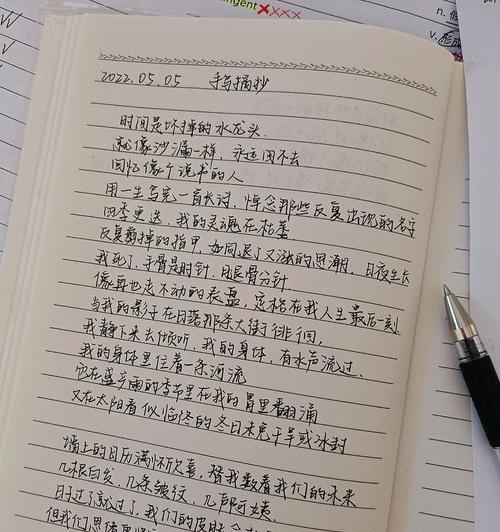 ngent xxxx
n. 
v. 形成
2022.05.05 手写摘抄
时间是坏掉的水龙头.
就像沙漏一样,永远回不去
回忆像个说书的人
用一生写完一首长诗,悼念那些反复出现的名字
四季更迭,我的灵魂在枯萎.
反复剪掉的指甲,如同退了又涨的思潮,日夜生长
我死了,手骨是时针,腿骨分针
像再也走不动的表盘,定格在我人生最后一刻
当我的影子在日落那条大街徘徊,
我静下来去倾听,我的身体,有水声流过.
我的身体里住着一条河流
它在盛产雨的季节里在我的胃里翻涌
又在太阳看似临终的冬日未免干旱或冰封
墙上的日历满怀欣喜,替我数着我们的未来
几根白发,几条皱纹,几声阿姨
日子过了就过了,我们的皮肤会
但我们思绪